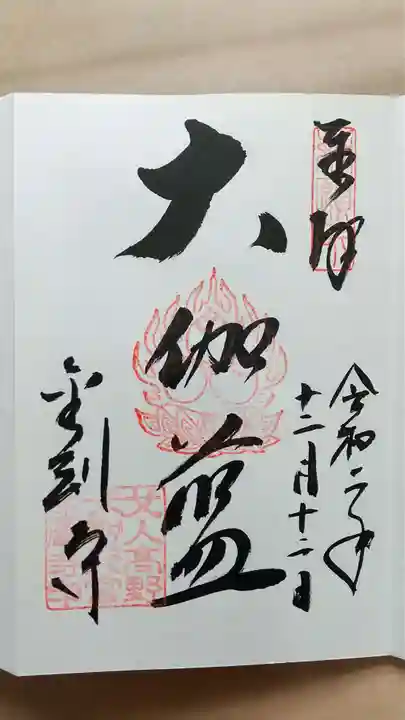 奉拝
令和二年
十二月十二日
大伽藍
金剛寺
女人高野